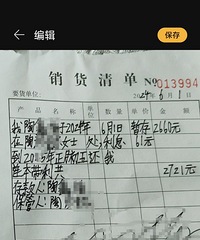 编辑
保存
销货清单 No 013994
要货单位: 2024年6月1日
产品名称 单位 数量 单价 金额
我陶 于2024年6月1日 暂存2660元
在陶 女士 处,利息 61元
到2025年正腊月还我
连本带利共 2721元
存款人:陶
保管人:陶